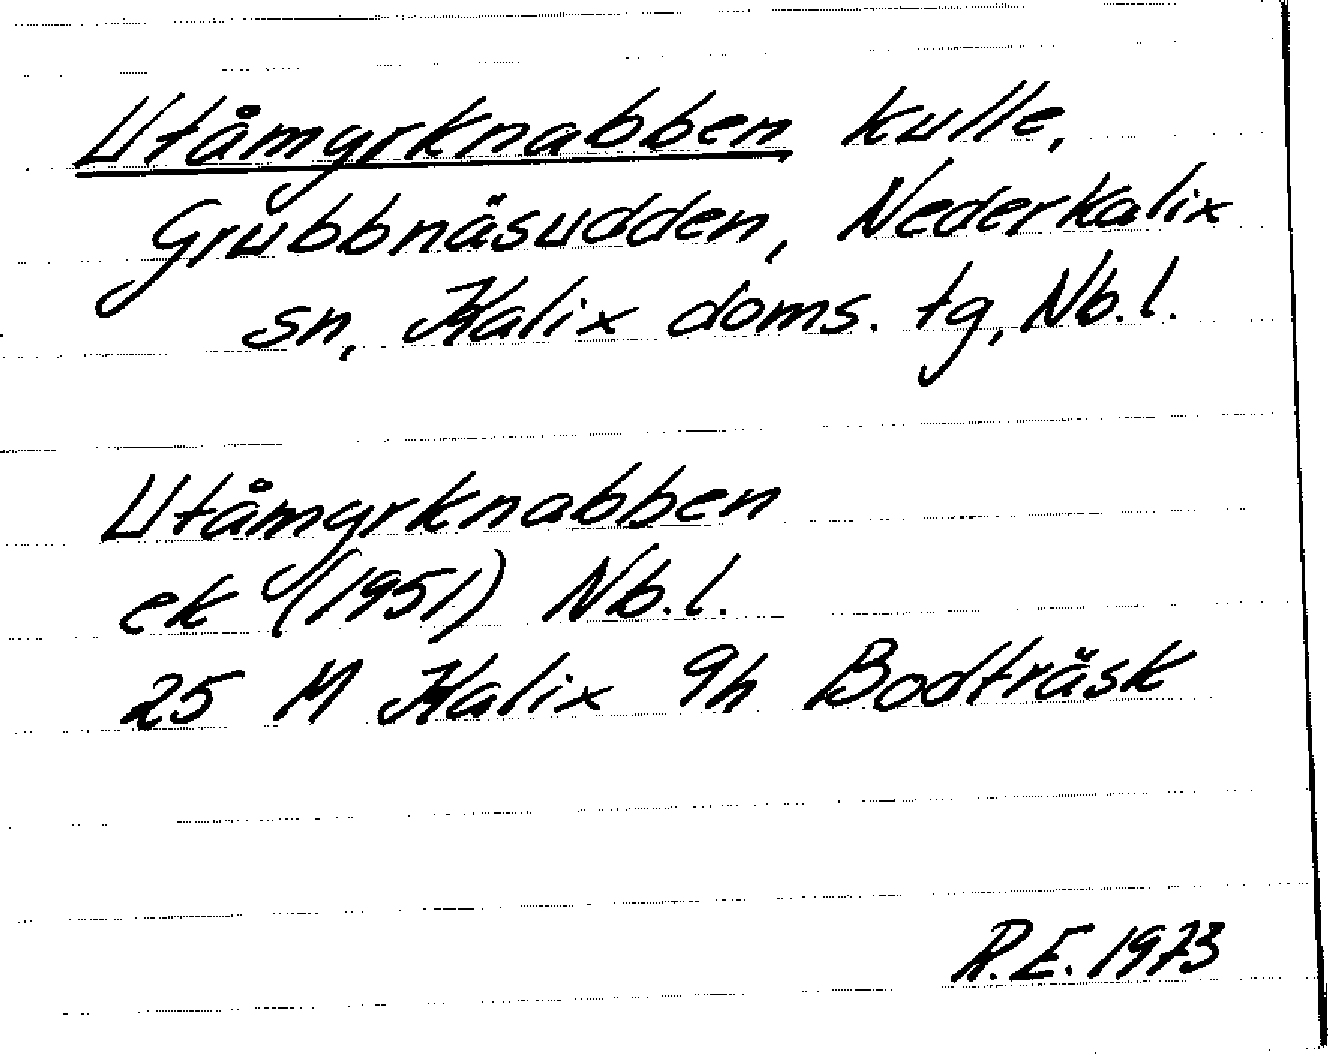 Utåmyrknabben kulle,
Grubbnäsudden, Nederkalix
sn, Kalix doms. tg, Nb.l.
Utåmyrknabben
ek (1951) Nb.l.
25 M Kalix 9h Bodträsk
R.E. 1973